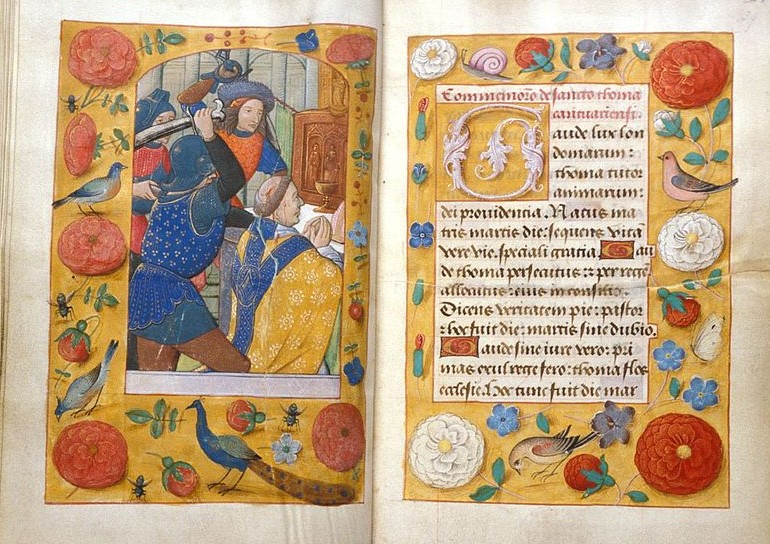 Commemoro de sancto thoma
cantuariensi
Gaude lux lon
domarum:
thoma tutor
animarum:
dei providencia. Natus ma
tris martis die: sequens vita
vere vie. speciali gratia. Gau
de thoma persecutus: & per rege
allocutus: eius in consiliis.
Dicens veritatem pie: pastor
& hoc fuit die: martis sine dubio.
Gaude sine iure vero: pri
mas exul rege fero: thoma flos
ecclesie. hoc tunc fuit die mar